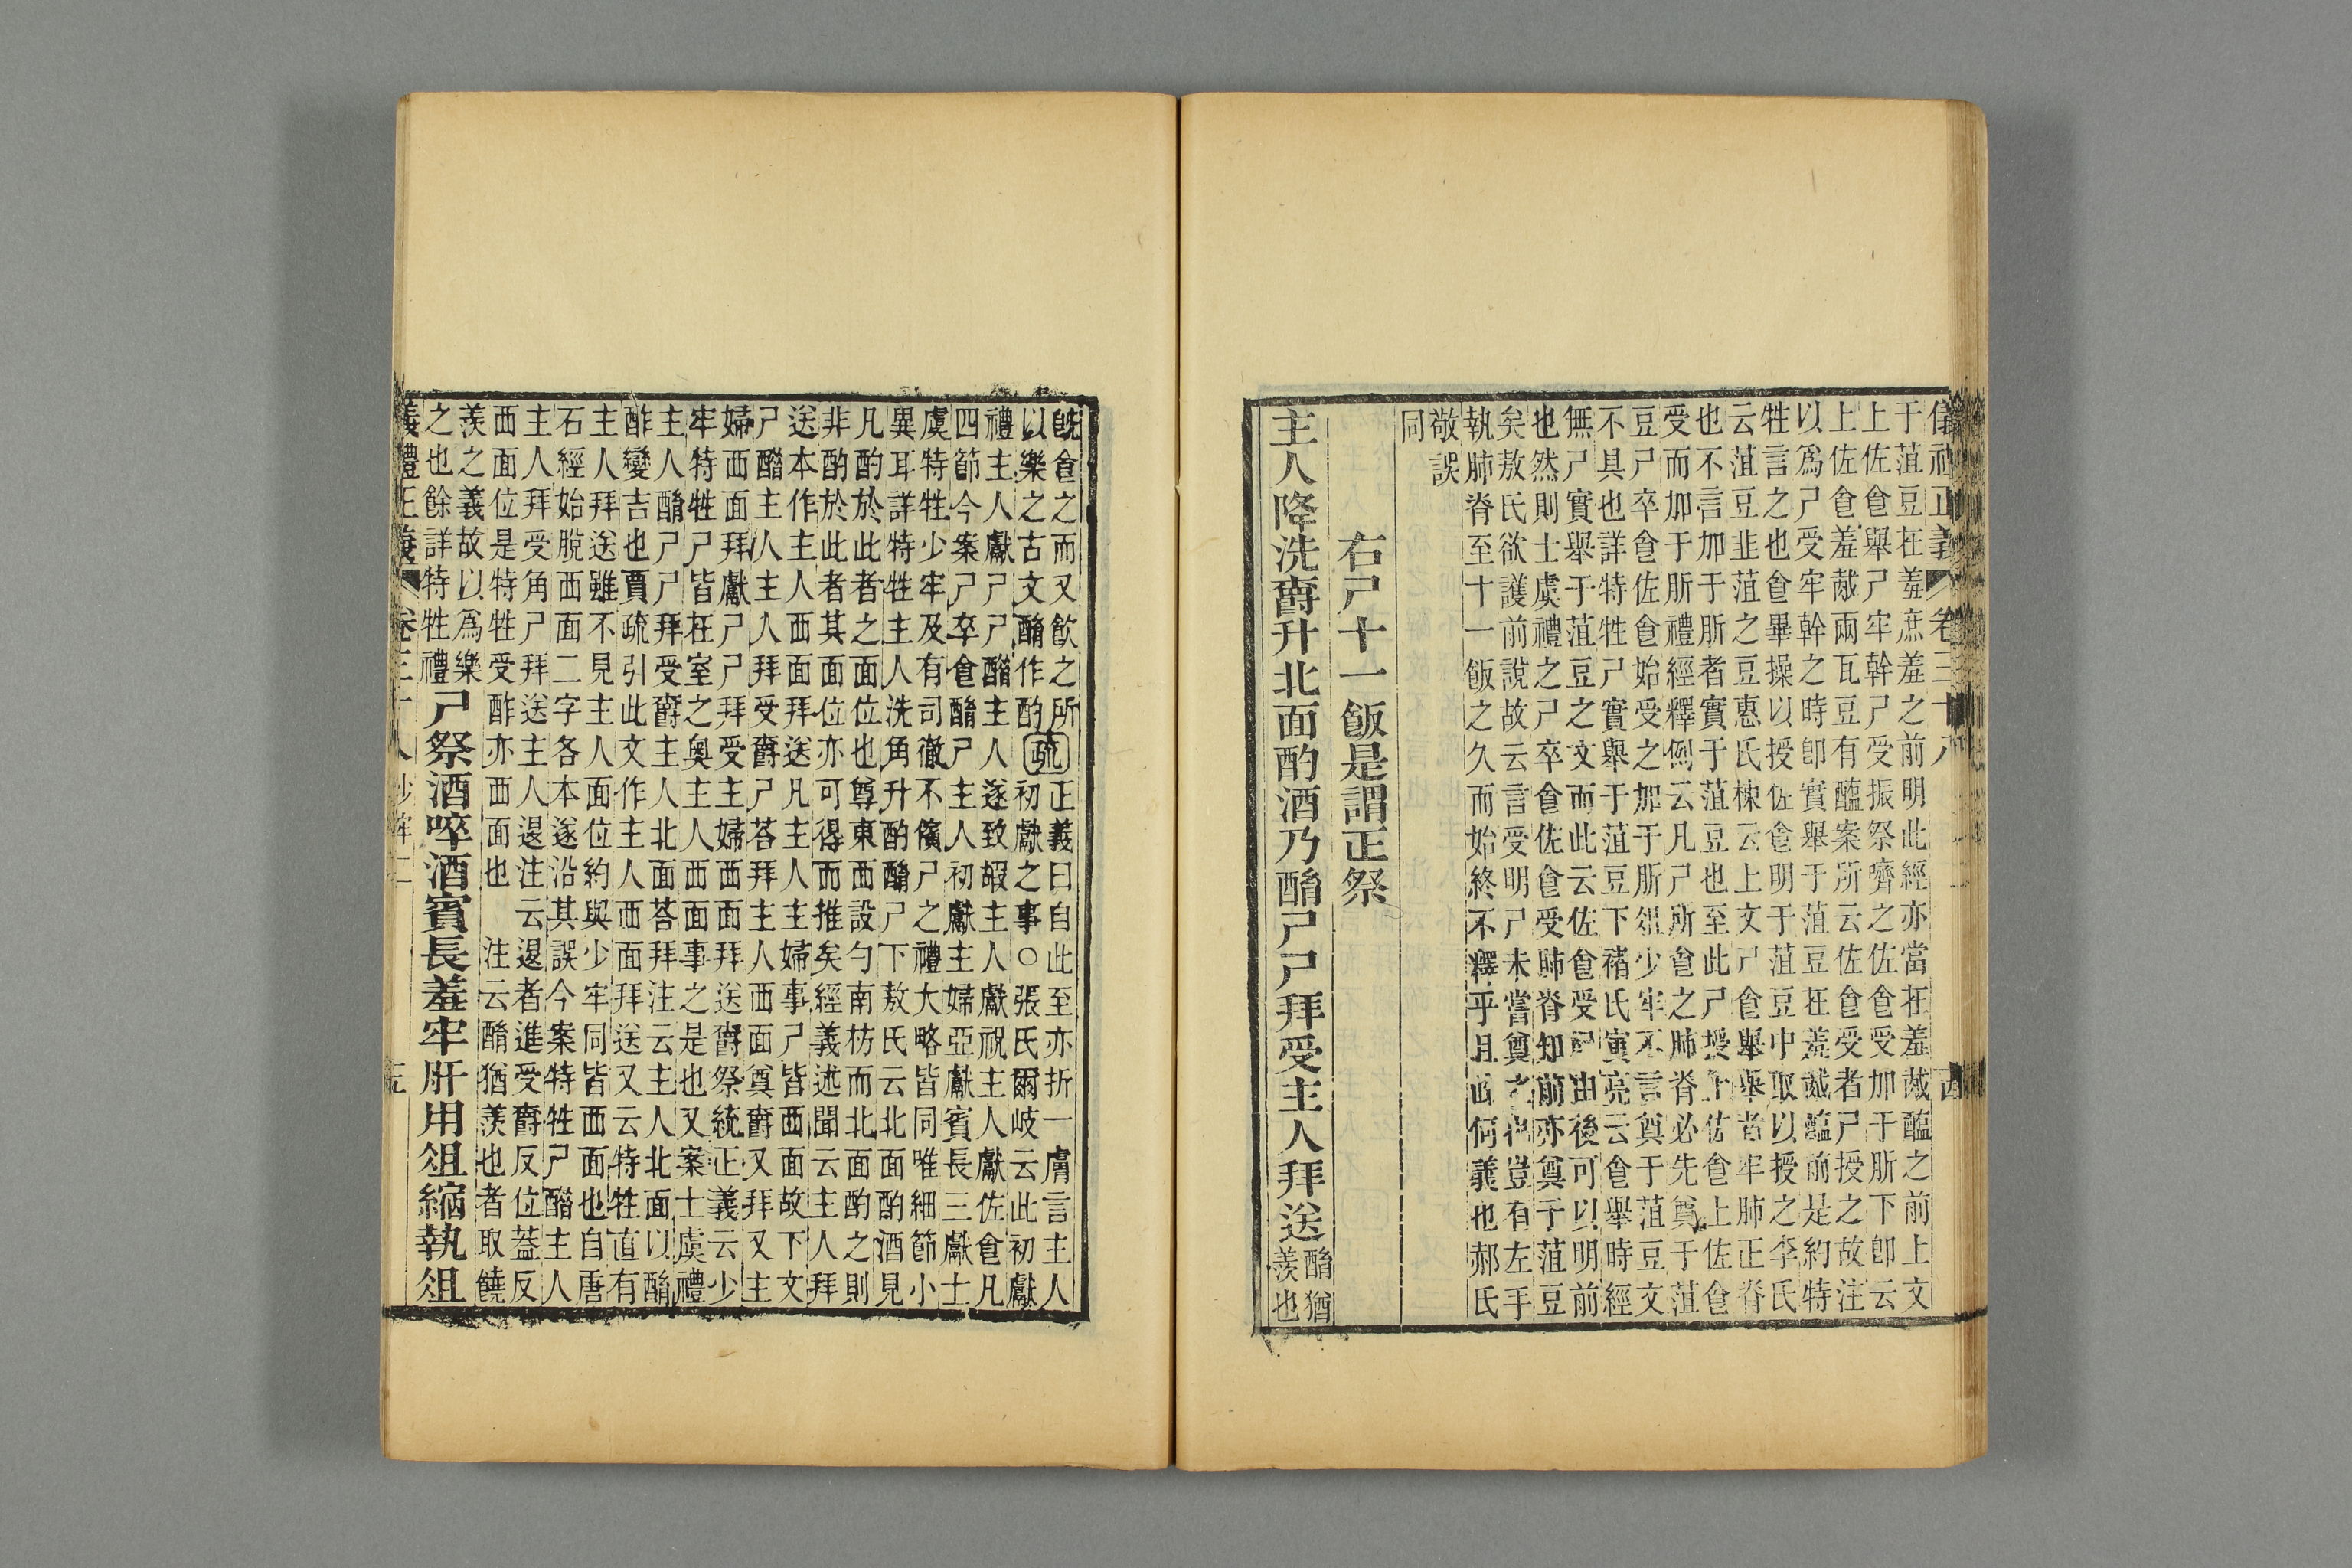 儀禮正義 卷三十八
于菹豆在羞庶羞之前明此經亦當在羞胾醢之前上文
上佐食舉尸牢幹尸受振祭嚌之佐食受加于肵下卽云
上佐食羞胾兩瓦豆有醢案所云佐食受者尸授之故注
以爲尸受牢幹之時卽實舉于菹豆在羞胾醢前是約特
牲言之也食畢操以授佐食明于菹豆中取以授之李氏
云菹豆韭菹之豆惠氏棟云上文尸食舉舉者牢肺正脊
也不言加于肵者實于菹豆也至此尸授上佐食上佐食
受而加于肵禮經釋例云凡尸所食之肺脊必先奠于菹
豆尸卒食佐食始受之加于肵俎少牢不言奠于菹豆文
不具也詳特牲尸實舉于菹豆下褚氏寅亮云食舉時經
無尸實舉于菹豆之文而此云佐食受尸由後可以明前
也然則士虞禮之尸卒食佐食受肺脊知前亦奠于菹豆
矣敖氏欲護前說故云言受明尸未嘗奠之也豈有左手
執肺脊至十一飯之久而始終不釋乎且此何義也郝氏
敬誤
同
右尸十一飯是謂正祭
主人降洗爵升北面酌酒乃酳尸尸拜受主人拜送
酳猶
羨也
旣食之而又飲之所
以樂之古文酳作酌
疏
正義曰自此至亦折一膚言主人
初獻之事○張氏爾岐云此初獻
禮主人獻尸尸醋主人遂致嘏主人獻祝主人獻佐食凡
四節今案尸卒食酳尸主人初獻主婦亞獻賓長三獻士
虞特牲少牢及有司徹不儐尸之禮大略皆同唯細節小
異耳詳特牲主人洗角升酌酳尸下敖氏云北面酌酒見
凡酌於此者之面位也尊東西設勺南枋而北面酌之則
非酌於此者其面位亦可得而推矣經義述聞云主人拜
送本作主人西面拜送凡主人主婦事尸皆西面故下文
尸醋主人主人拜受爵尸荅拜主人西面奠爵又拜又主
婦西面拜獻尸尸拜受主婦西面拜送爵祭統正義云少
牢特牲尸皆在室之奧主人西面事之是也又案士虞禮
主人酳尸尸拜受爵主人北面荅拜注云主人北面以酳
酢變吉也賈疏引此文作主人西面拜送又云特牲直有
主人拜送雖不見主人面位約與少牢同皆西面也自唐
石經始脫西面二字各本遂沿其誤今案特牲尸醋主人
主人拜受角尸拜送主人退注云退者進受爵反位葢反
西面位是特牲受酢亦西面也
注云酳猶羨也者取饒
羨之義故以爲樂
之也餘詳特牲禮
尸祭酒啐酒賓長羞牢肝用俎縮執俎
儀禮正義 卷三十八 少牢二